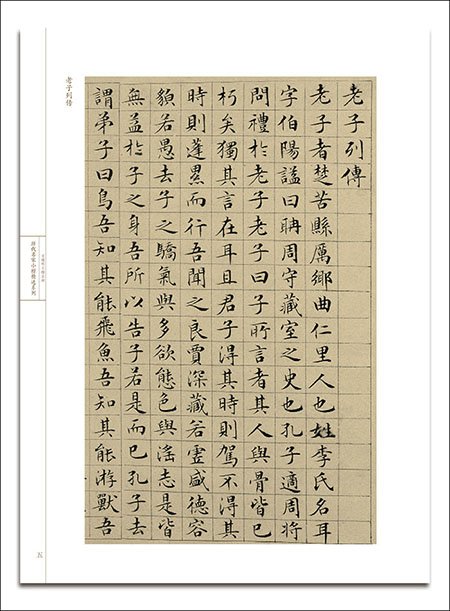 老子列傳
老子者楚苦縣厲鄉曲仁里人也姓李氏名耳
字伯陽謚曰聃周守藏室之史也孔子適周將
問禮於老子老子曰子所言者其人與骨皆已
朽矣獨其言在耳且君子得其時則駕不得其
時則蓬累而行吾聞之良賈深藏若虛盛德容
貌若愚去子之驕氣與多欲態色與淫志是皆
無益於子之身吾所以告子若是而已孔子去
謂弟子曰鳥吾知其能飛魚吾知其能游獸吾
老子列传
历代名家小楷精选系列
五